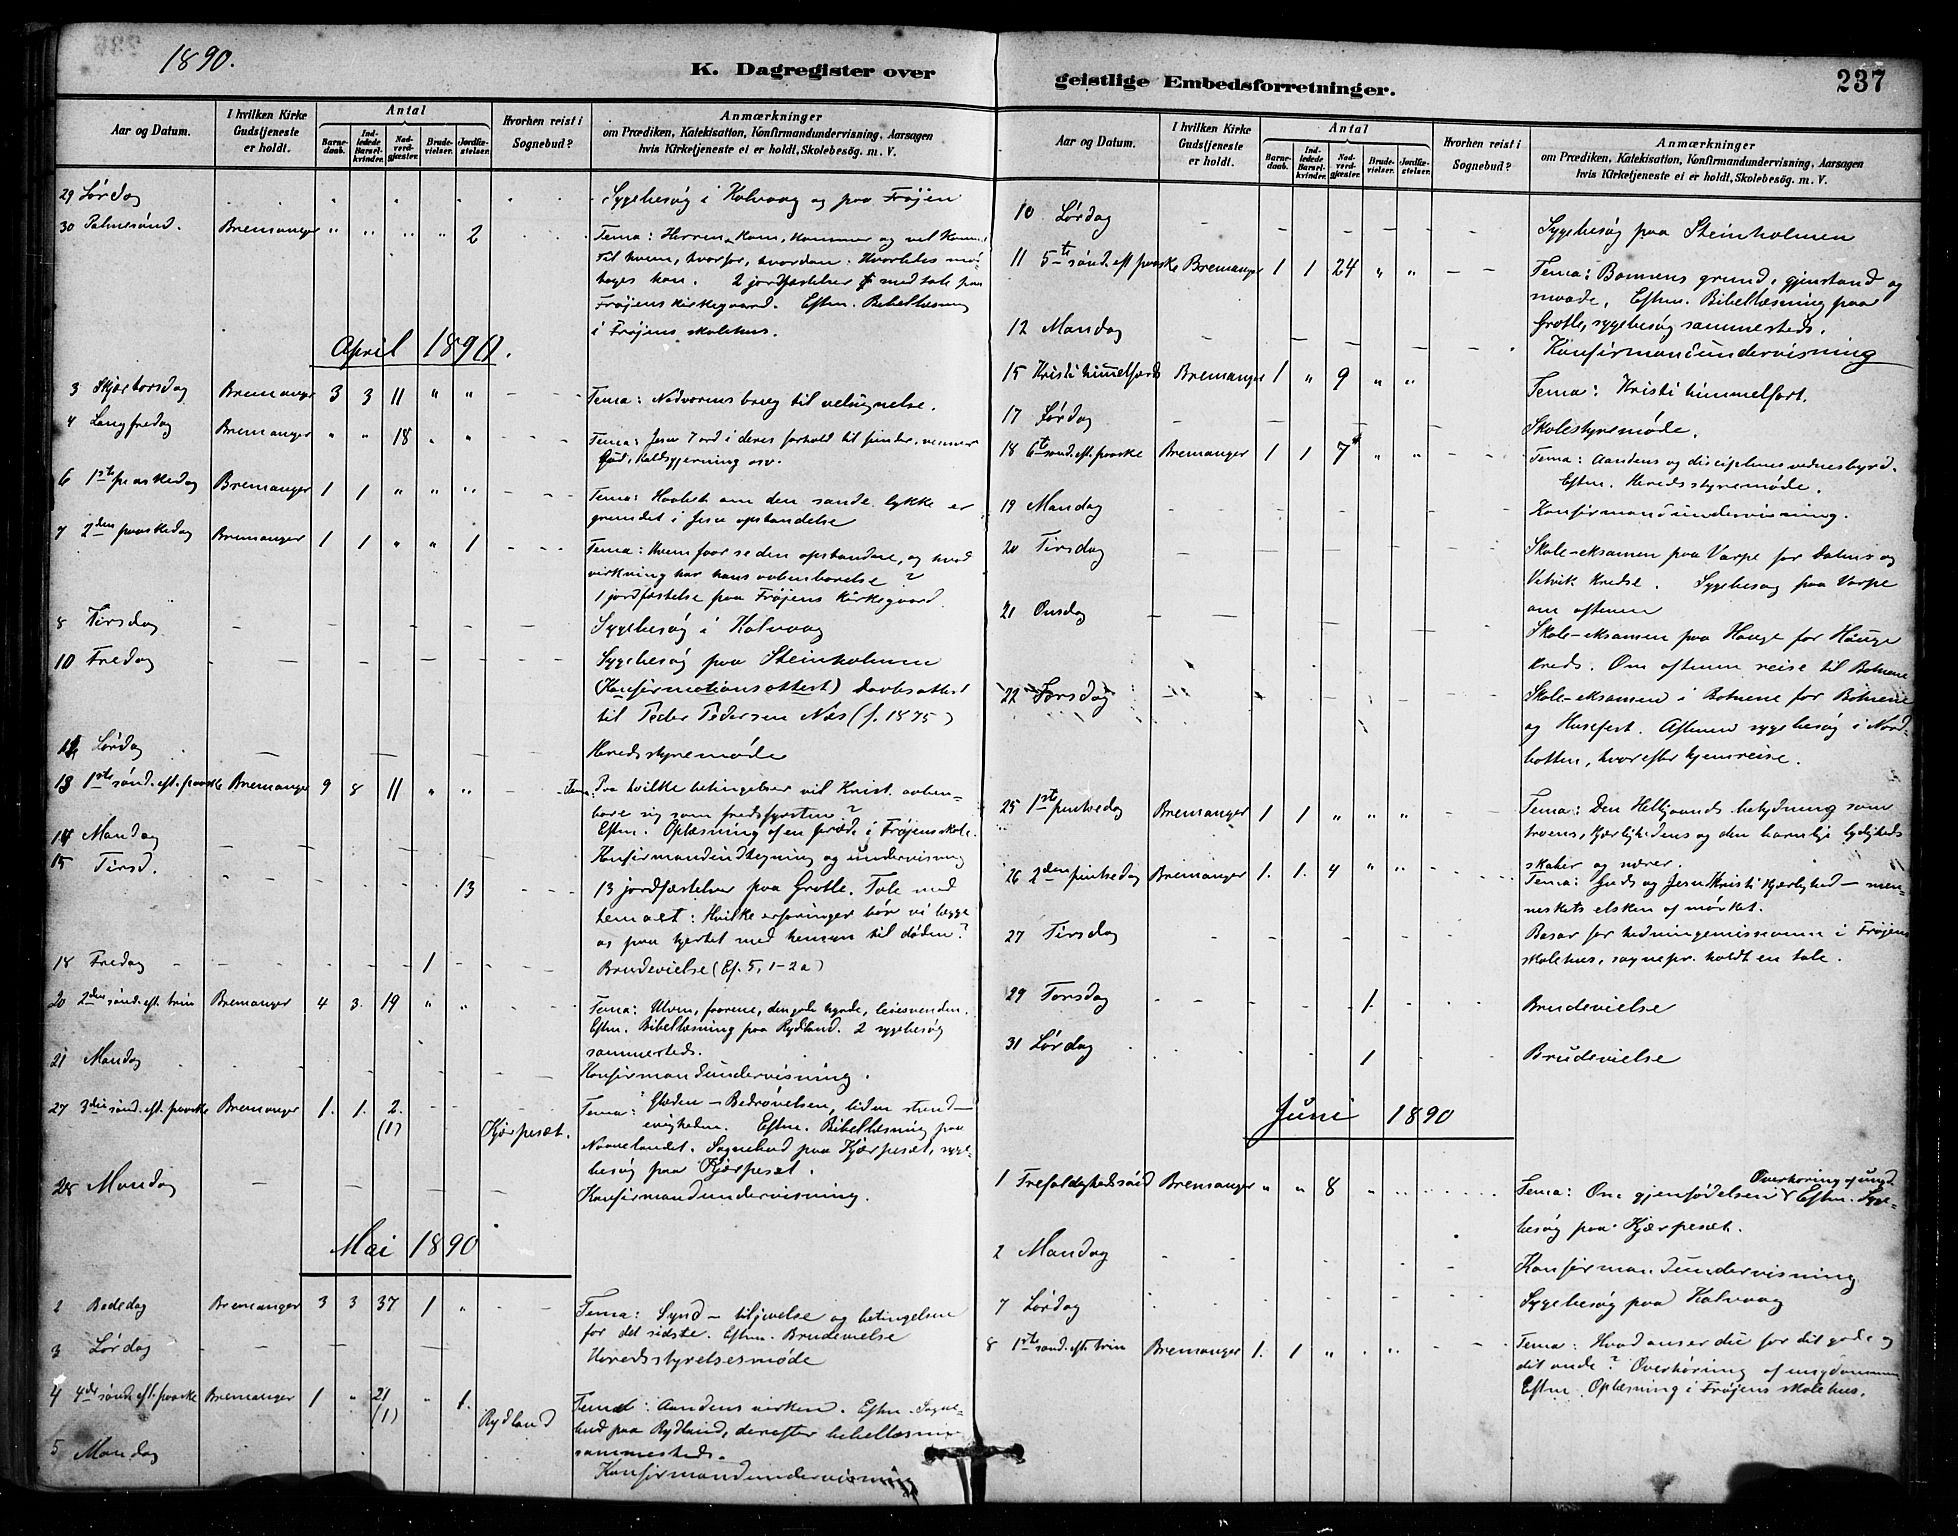 1890.
K. Dagregister over
Aar og Datum.
I hvilken Kirke Gudstjeneste er holdt.
Antal
Barnedaab.
Indledede Barselkvinder.
Nadverdgjæster.
Brudevielser.
Jordfæstelser.
Hvorhen reist i Sognebud?
Anmærkninger
om Prædiken, Katekisation, Konfirmandundervisning, Aarsagen
hvis Kirketjeneste ei er holdt, Skolebesög. m. V.
29 Lørdag Sygebesøg i Kalvaag og paa Frøjen
30 Palmesønd. Bremanger " " " " 2 Tema: Herren kom, kommer og vil komme
til hvem, hvorfor, hvordan. Hvorledes mo-
tages han. 2 jordfæstelser med tale paa
Frøjens kirkegaard. Eftm. Bibellæsning
i Frøjens skolehus.
April 1890.
3 Skjærtorsdag Bremanger 3 3 11 " " Tema: Nadverens til velsignelse.
4 Langfredag Bremanger " " 18 " " Tema: Jesu 7 ord i deres forhold til fiender, venner
Gud, Kaldsgjerning osv.
6 1ste paaskedag Bremanger 1 1 " " " Tema: Haabet om den sande lykke er
grundet i Jesu opstandelse
7 2den paaskedag Bremanger 1 1 " " 1 Tema: Hvem faar se den opstandne, og hvad
virkning har hans aabenbarelse?
1 jordfæstelse paa Frøjens Kirkegaard.
8 Tirsdag Sygebesøg i Kalvaag
10 Fredag Sygebesøg paa Steinholmen
(Konfirmationsattest) Daabsattest
til Peder Pedersen Næs (f. 1875)
12 Lørdag Heredsstyremøde
13 1ste sønd. eft. paaske Bremanger 9 8 11 " " Tema: Paa hvilke betingelser vil Krist. aaben-
bare sig som fredsfyrsten?
Eftm. Oplæsning af en præd. i Frøjens skole.
14 Mandag Konfirmandindtegning og undervisning
15 Tirsd. 13 13 jordfæstelser paa Grotle. Tale med
temaet: Hvilke erfaringer bør vi lægge
os paa hjertet med hensyn til døden?
18 Fredag 1 Brudevielse (Ef. 5, 1-2a)
20 2den sønd. eft. trin Bremanger 4 3. 19 " " Tema: Ulven, faarene, den gode hyrde, leiesvenden.
Eftm. Bibellæsning paa Rydland. 2 sygebesøg
sammesteds.
21 Mandag Konfirmandundervisning.
27 3die sønd. eft. paaske Bremanger 1. 1. 2. (1) Kjærpesæt. Tema: Glæden - Bedrøvelsen, liden stund -
evigheden. Eftm. Bibellæsning paa
Novnelandet. Sognebud paa Kjærpesæt, syge-
besøg paa Kjærpesæt.
28 Mandag Konfirmandundervisning.
Mai 1890
2 Bededag Bremanger 3 3 37 1 " Tema: Synd - tilgivelse og betingelsen
for det sidste. Eftm. Brudevielse
3 Lørdag Heredsstyrelsesmøde
4 4de sønd. eft. paaske Bremanger 1 " 21 (1) " 1. Rydland Tema: Aandens virken. Eftm. Sogne-
bud paa Rydland, derefter bibellæsning
sammesteds.
5 Mandag Konfirmandundervisning
geistlige Embedsforretninger.
237
Aar og Datum.
I hvilken Kirke Gudstjeneste er holdt.
Antal
Barnedaab.
Indledede Barselkvinder.
Nadverdgjæster.
Brudevielser.
Jordfæstelser.
Hvorhen reist i Sognebud?
Anmærkninger
om Prædiken, Katekisation, Konfirmandundervisning, Aarsagen
hvis Kirketjeneste ei er holdt, Skolebesög. m. V.
10 Lørdag Sygebesøg paa Steinholmen
11 5te sønd. eft. paaske Bremanger 1 1 24 " " Tema: Bønnens grund, gjenstand og
maade. Eftm. Bibellæsning paa
Grotle, sygebesøg sammesteds.
12 Mandag Konfirmandundervisning
15 Kristi himmelfartsd. Bremanger 1 " 9 " " Tema: Kristi himmelfart.
17 Lørdag Skolestyremøde.
18 6te sønd. eft. paaske Bremanger 1 1 7 " " Tema: Aandens og disciplenes vidnesbyrd.
Eftm. Heredsstyremøde.
19 Mandag Konfirmandundervisning.
20 Tirsdag Skole-eksamen paa Varpe for Dalens og
Vetvik Kredse. Sygebesøg paa Varpe
om aftenen
21 Onsdag Skole-eksamen paa Hauge for Hauge
kreds. Om aftenen reise til Botnene
22 Torsdag Skole-eksamen i Botnene for Botnene
og Husefest. Aftenen sygebesøg i Nord-
botten, hvorefter hjemreise.
25 1ste pintsedag Bremanger 1 1 " " " Tema: Den Helligaands betydning som
troens, kjærlighedens og den barnlige lydigheds
skaber og nærer.
26 2den pintsedag Bremanger 1. 1. 4 " " Tema: Guds og Jesu Kristi kjærlighed - men-
neskets elsken af mørket.
27 Tirsdag Basar for hedningemissionen i Frøjens
skolehus, sognepr. holdt en tale.
29 Torsdag 1. Brudevielse
31 Lørdag 1 Brudevielse
Juni 1890
1 Trefoldighedssønd Bremanger " " 8 " " Tema: Om gjenfødelsen Overhøring af ungd. Eftm. Syge-
besøg paa Kjærpesæt.
2 Mandag Konfirmandundervisning
7 Lørdag Sygebesøg paa Kalvaag
8 1ste sønd. eft. trin Bremanger 1. 1 " " Tema: Hvad anser du for dit gode og
dit onde? Overhøring af ungdommen
Eftm. Oplæsning i Frøjens skolehus.